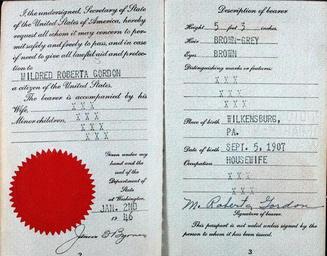 I, the undersigned, Secretary of State
of the United States of America, hereby
request all whom it may concern to per-
mit safely and freely to pass, and in case
of need to give all lawful aid and protec-
tion to
MILDRED ROBERTA GORDON
a citizen of the United States.
The bearer is accompanied by his
Wife, XXX
Minor children, XXX
XXX
XXX
Given under my
hand and the
seal of the
Department of
State
at Washington.
JAN. 2ND
1946
James F. Byrnes
2
Description of bearer
Height 5 feet 3 inches.
Hair BROWN-GREY
Eyes BROWN
Distinguishing marks or features:
XXX
XXX
XXX
Place of birth WILKENSBURG,
PA.
Date of birth SEPT. 5, 1907
Occupation HOUSEWIFE
XXX
M. Roberta Gordon
Signature of bearer.
This passport is not valid unless signed by the
person to whom it has been issued.
3